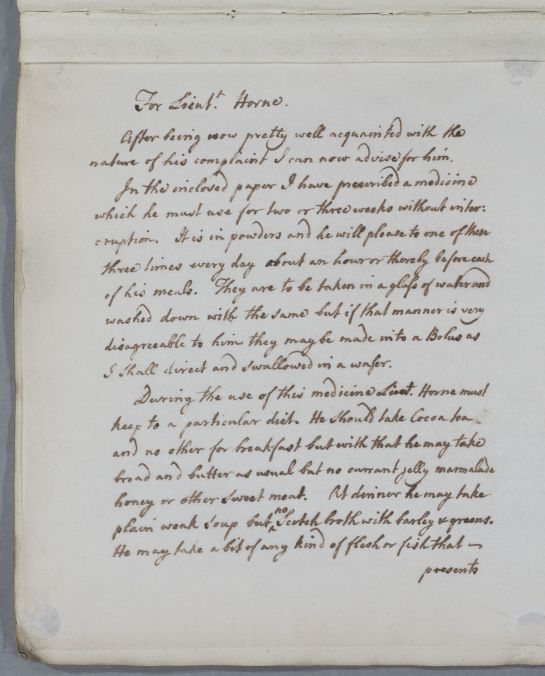 For Lieut.t Horne.
After being now pretty well acquainted with the
nature of his complaint I can now advise for him.
In the inclosed paper I have prescribed a medicine
which he must use for two or three weeks without inter:
=ruption. It is in powders and he will please to one of these
three times every day about an hour or thereby before each
of his meals. They are to be taken in a glass of water and
washed down with the same but if that manner is very
disagreeable to him they may be made into a Bolus as
I Shall direct and Swallowed in a wafer.
During the use of this medicine Lieut. Horne must
keep to a particular diet. He Should take Cocoa tea
and no other for breakfast but with that he may take
bread and butter as usual but no currant jelly marmalade
honey or other Sweet meat. At dinner he may take
plain weak Soup but no Scotch broth with barley & greens.
He may take a bit of any kind of flesh or fish that
presents